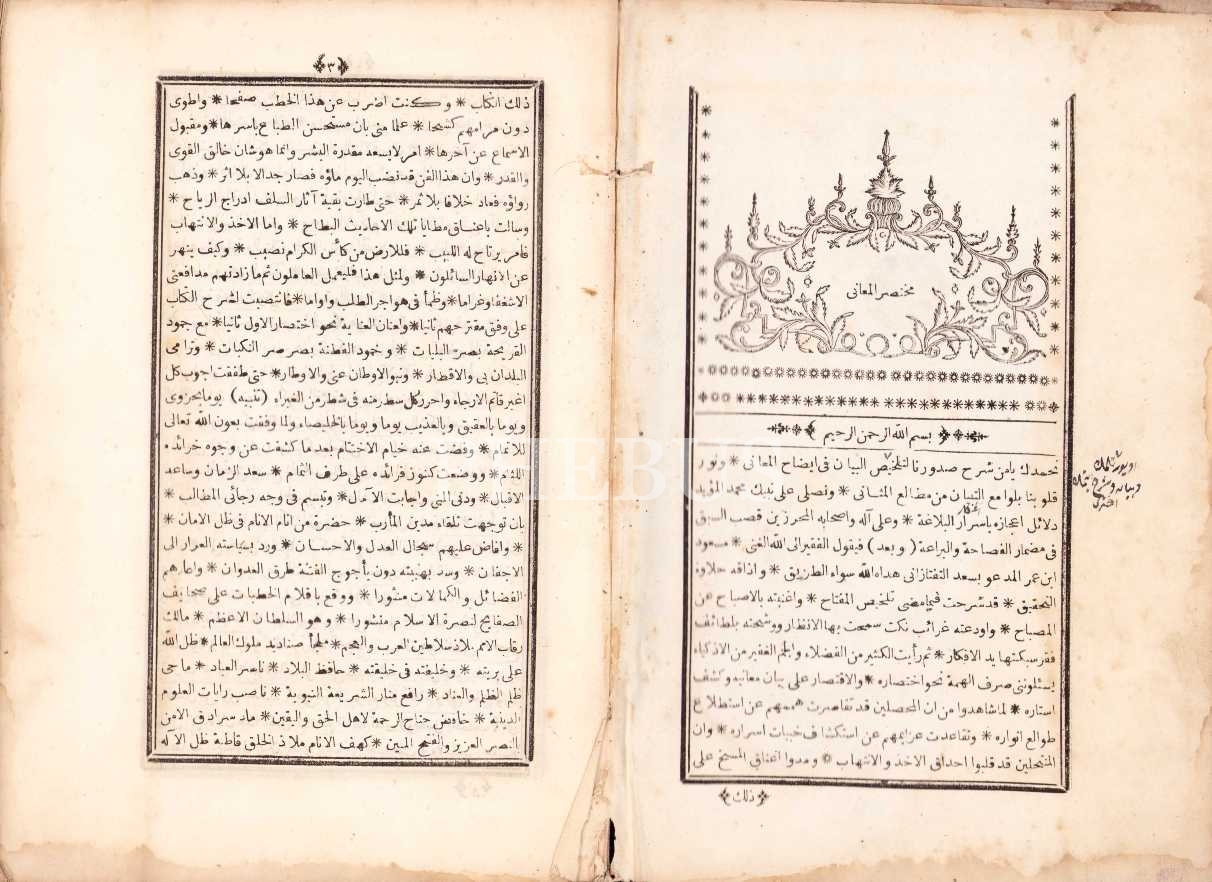 مختصر المعانى
بسم الله الرحمن الرحيم
نحمدك يامن شرح صدورنا لتلخيص البيان فى ايضاح المعانى * ونور
قلوبنا بلوامع التبيان من مطالع المثانى * ونصلى على نبيك محمد المؤيد
دلائل اعجازه باسرار البلاغة * وعلى آله واصحابه المحرزين قصب السبق
فى مضمار الفصاحة والبراعة (وبعد) فيقول الفقير الى الله الغنى * مسعود
ابن عمر المدعو بسعد التفتازانى هداه الله سواء الطريق * واذاقه حلاوة
التحقيق * قد شرحت فيما مضى تلخيص المفتاح * واغنيته بالاصباح عن
المصباح * واودعته غرائب نكت سمحت بها الانظار ووشحته بلطائف
فقر سبكتها يد الافكار * ثم رأيت الكثير من الفضلاء والجم الغفير من الاذكياء
يسئلوننى صرف الهمة نحو اختصاره * والاقتصار على بيان معانيه وكشف
استاره * لما شاهدوا من ان المحصلين قد تقاصرت هممهم عن استطلاع
طوالع انواره * وتقاعدت عزايمهم عن استكشاف خبيات اسراره * وان
المنتحلين قد قلبوا احداق الاخذ والانتهاب * ومدوا اعناق المسخ على
ذلك
٣
ذلك الكتاب * وكنت اضرب عن هذا الخطب صفحا * واطوى
دون مرامهم كشحا * علما منى بان مستحسن الطباع باسرها * ومقبول
الاسماع عن آخرها * امر لا يسعه مقدرة البشر وانما هو شان خالق القوى
والقدر * وان هذا الفن قد نضب اليوم ماؤه فصار جدالا بلا اثر * وذهب
رواؤه فعاد خلافا بلا ثمر * حتى طارت بقية آثار السلف ادراج الرياح *
وسالت باعناق مطايا تلك الاحاديث البطاح * واما الاخذ والانتهاب
فامر يرتاح له اللبيب * فللارض من كأس الكرام نصيب * وكيف ينهر
عن الانهار السائلون * ولمثل هذا فليعمل العاملون ثم ما زادتهم مدافعتى
الا شغفا وغراما * وظمأ فى هواجر الطلب واواما * فانتصبت لشرح الكتاب
على وفق مقترحهم ثانيا * ولعنان العناية نحو اختصار الاول ثانيا * مع جمود
القريحة بصر البليات * وخمود الفطنة بصرصر النكبات * وترامى
البلدان بى والاقطار * ونبو الاوطان عنى والاوطار * حتى طفقت اجوب كل
اغبر قاتم الارجاء واحرر كل سطر منه فى شطر من الغبراء (تنبيه) يوما بحزوى
ويوما بالعقيق وبالعذيب يوما ويوما بالخليصاء ولما وفقت بعون الله تعالى
للاتمام * وقضت عنه خيام الاختتام بعد ما كشفت عن وجوه خرائده
اللثام * ووضعت كنوز فرائده على طرف الثمام * سعد الزمان وساعد
الاقبال * ودنى المنى واجابت الآمال * وتبسم فى وجه رجائى المطالب *
بان توجهت تلقاء مدين المأرب * حضرة من انام الانام فى ظل الامان *
* وافاض عليهم سجال العدل والاحسان * ورد بسياسته الغرار الى
الاجفان * وسد بهيبته دون يأجوج الفتنة طرق العدوان * واعاد هم
الفضائل والكمالات منثورا * ووقع باقلام الخطيات على صحايف
الصفايح لنصرة الاسلام منشورا * وهو السلطان الاعظم * مالك
رقاب الامم ملاذ سلاطين العرب والعجم * ملجأ صناديد ملوك العالم * ظل الله
على بريته * وخليفته فى خليقته * حافظ البلاد * ناصر العباد * ماحى
ظلم الظلم والعناد * رافع منار الشريعة النبوية * ناصب رايات العلوم
الدينية * خافض جناح الرحمة لاهل الحق واليقين * ماد سرادق الامن
بالنصر العزيز والفتح المبين * كهف الانام ملاذ الخلق قاطبة ظل الاله